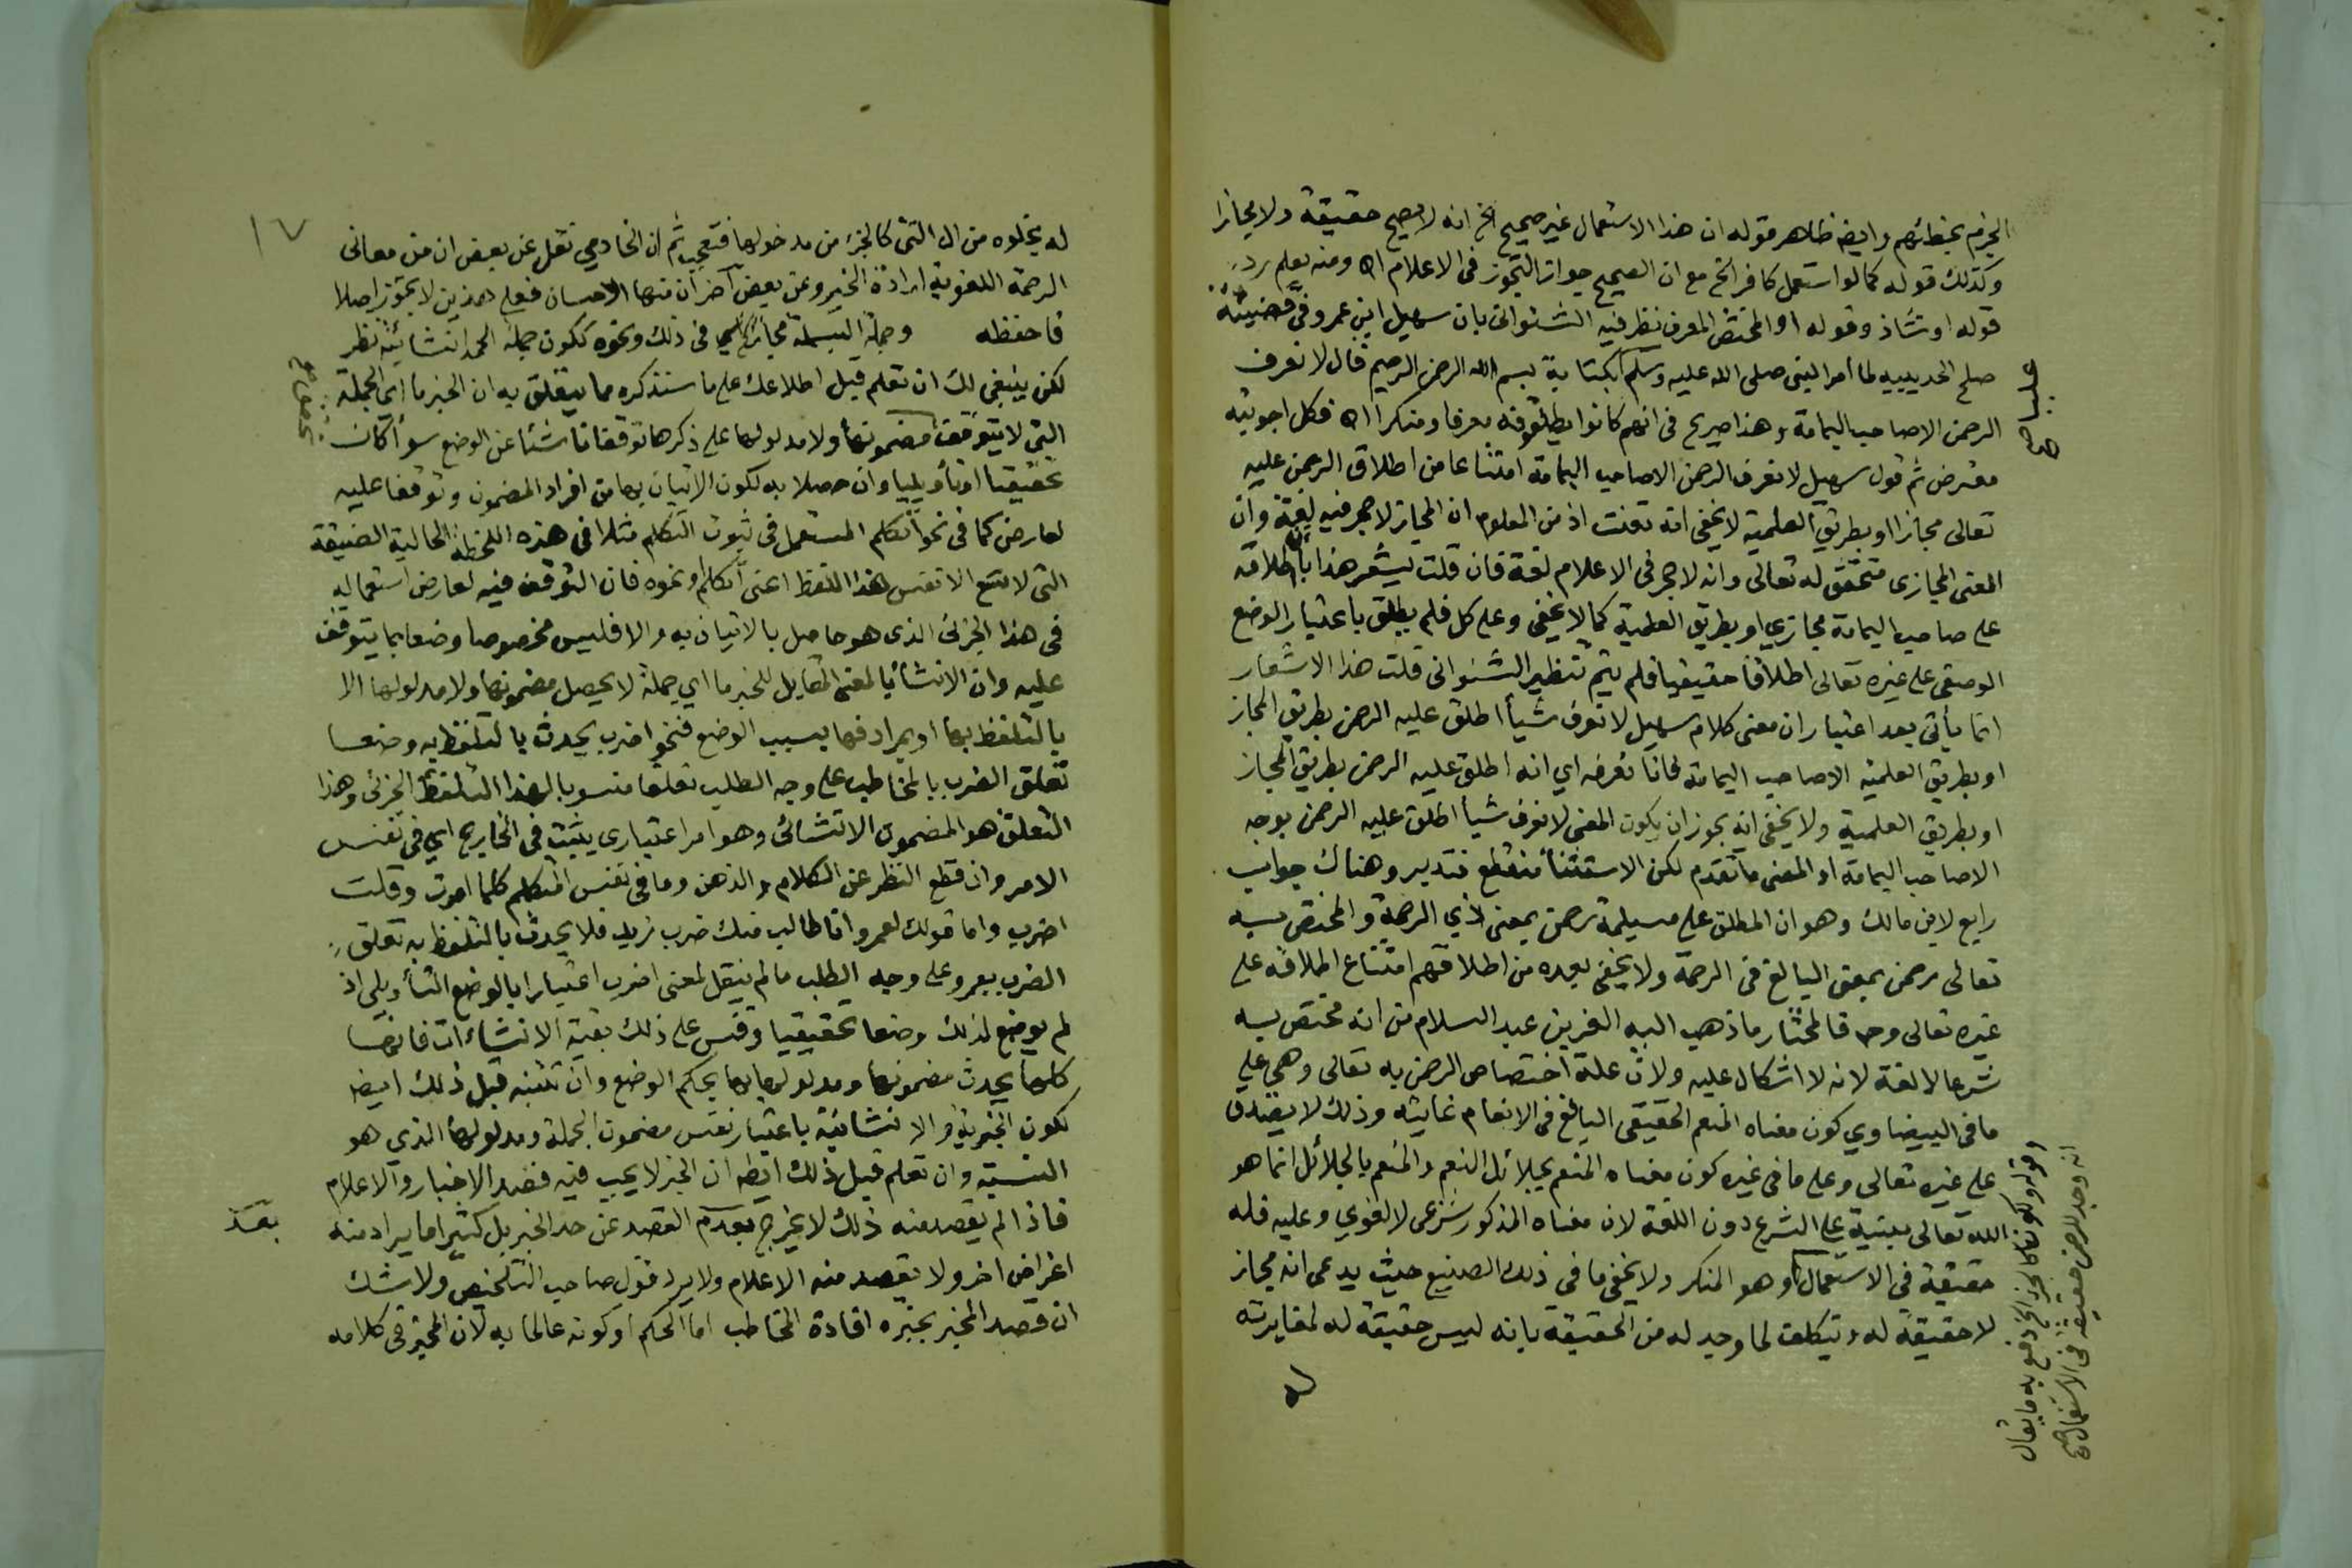 الجزم بخطائهم وايضا ظاهر قوله ان هذا الاستعمال غير صحيح الخ انه لا يصح حقيقة ولا مجازا
وكذلك قوله كما لو استعمل كافر الخ مع ان الصحيح جواز التجوز في الاعلام اه ومنه يعلم رد
قوله او شاذ وقوله او المختص المعرف نظر فيه الشنواني بان سهيل ابن عمرو في قضيته
صلح الحديبيه لما أمر النبي صلى الله عليه وسلم بكتابة بسم الله الرحمن الرحيم قال لا نعرف
الرحمن الا صاحب اليمامة وهذا صريح في انهم كانوا يطلقونه معرفا ومنكرا اه فكل اجوبته
معترض ثم قول سهيل لا نعرف الرحمن الا صاحب اليمامة امتناعا من اطلاق الرحمن عليه
تعالى مجازا او بطريق العلمية لا يخفى انه تعنت اذ من المعلوم ان المجاز لا حجر فيه لغة وان
المعنى المجازي متحقق له تعالى وانه لا حجر في الاعلام لغة فان قلت يشعر هذا بأن اطلاقه
على صاحب اليمامة مجازي او بطريق العلمية كما لا يخفى وعلى كل فلم يطلق باعتبار الوضع
الوصفي على غيره تعالى اطلاقا حقيقيا فلم يتم تنظير الشنواني قلت هذا الاشعار
انما يأتي بعد اعتبار ان معنى كلام سهيل لا نعرف شيأ اطلق عليه الرحمن بطريق المجاز
او بطريق العلمية الا صاحب اليمامة فانا نعرفه اي انه اطلق عليه الرحمن بطريق المجاز
او بطريق العلمية ولا يخفى انه يجوز ان يكون المعنى لا نعرف شيأ اطلق عليه الرحمن بوجه
الا صاحب اليمامة او المعنى ما تقدم لكن الاستثنأ منقطع فتدبر وهناك جواب
رابع لابن مالك وهو ان المطلق على مسيلمة رحمن بمعنى ذي الرحمة والمختص به
تعالى رحمن بمعنى البالغ في الرحمة ولا يخفى بعده من اطلاقهم امتناع اطلاقه على
غيره تعالى وح فالمختار ما ذهب اليه العز بن عبد السلام من انه مختص به
شرعا لا لغة لانه لا اشكال عليه ولان علة اختصاص الرحمن به تعالى وهي على
ما في البيضاوي كون معناه المنعم الحقيقي البالغ في الانعام غايته وذلك لا يصدق
على غيره تعالى وعلى ما في غيره كون معناه المنعم بجلائل النعم والمنعم بالجلائل انما هو
الله تعالى مبنية على الشرع دون اللغة لان معناه المذكور شرعي لا لغوي وعليه فله
حقيقة في الاستعمال وهو المنكر ولا يخفى ما في ذلك الصنيع حيث يدعى انه مجاز
لا حقيقة له ويتكلف لما وجد له من الحقيقة بانه ليس حقيقة له لمغايرته
له
وقوله وكونها كالجزء الخ دفع به ما يقال
انه وجد للرحمن حقيقة في الاستعمال
١٧
له بخلوه من ال التي كالجزء من مدخولها فتعجب ثم ان الخادمي نقل عن بعض ان من معاني
الرحمة اللغوية ارادة الخير وعن بعض آخر ان منها الاحسان فعلى هذين لا تجوز اصلا
فاحفظه وجملة البسملة مجاز في ذلك ونحوه ككون جملة الحمد انشائية نظر
لكن ينبغي لك ان تعلم قبل اطلاعك على ما سنذكره مما يتعلق به ان الخبر ما اي الجملة
التي لا يتوقف مضمونها ولا مدلولها على ذكرها توقفا ناشئا عن الوضع سوأ كان
تحقيقيا او تأويليا وان حصلا به لكون الاتيان بها من افراد المضمون وتوقفا عليه
لعارض كما في نحو أتكلم المستعمل في ثبوت التكلم مثلا في هذه اللحظة الحالية الضيقة
التي لا تسع الا نفس هذا اللفظ اعني أتكلم او نحوه فان التوقف فيه لعارض استعماله
في هذا الجزئي الذي هو حاصل بالاتيان به والا فليس مخصوصا وضعا بما يتوقف
عليه وان الانشأ بالمعنى المقابل للخبر ما اي جملة لا يحصل مضمونها ولا مدلولها الا
بالتلفظ بها او بمرادفها بسبب الوضع فنحو اضرب يحدث بالتلفظ به وضعا
تعلق الضرب بالمخاطب على وجه الطلب تعلقا منسوبا لهذا التلفظ الجزئي وهذا
التعلق هو المضمون الانشائي وهو امر اعتباري يثبت في الخارج اي في نفس
الامر وان قطع النظر عن الكلام والذهن وما في نفس المتكلم كلما امرت وقلت
اضرب واما قولك لعمرو انا طالب منك ضرب زيد فلا يحدث بالتلفظ به تعلق
الضرب بعمرو على وجه الطلب ما لم ينقل لمعنى اضرب اعتبارا بالوضع التأويلي اذ
لم يوضع لذلك وضعا تحقيقيا وقس على ذلك بقية الانشاءات فانها
كلها يحدث مضمونها ومدلولها بها بحكم الوضع وان تنتبه قبل ذلك ايضا
لكون الخبرية والانشائية باعتبار نفس مضمون الجملة ومدلولها الذي هو
النسبة وان تعلم قبل ذلك ايضا ان الخبر لا يجب فيه قصد الاخبار والاعلام
فاذا لم يقصد منه ذلك لا يخرج بعدم القصد عن حد الخبر بل كثيرا ما يراد منه
اغراض اخر ولا يقصد منه الاعلام ولا يرد قول صاحب التلخيص ولا شك
ان قصد المخبر بخبره افادة المخاطب اما الحكم او كونه عالما به لان المخبر في كلامه